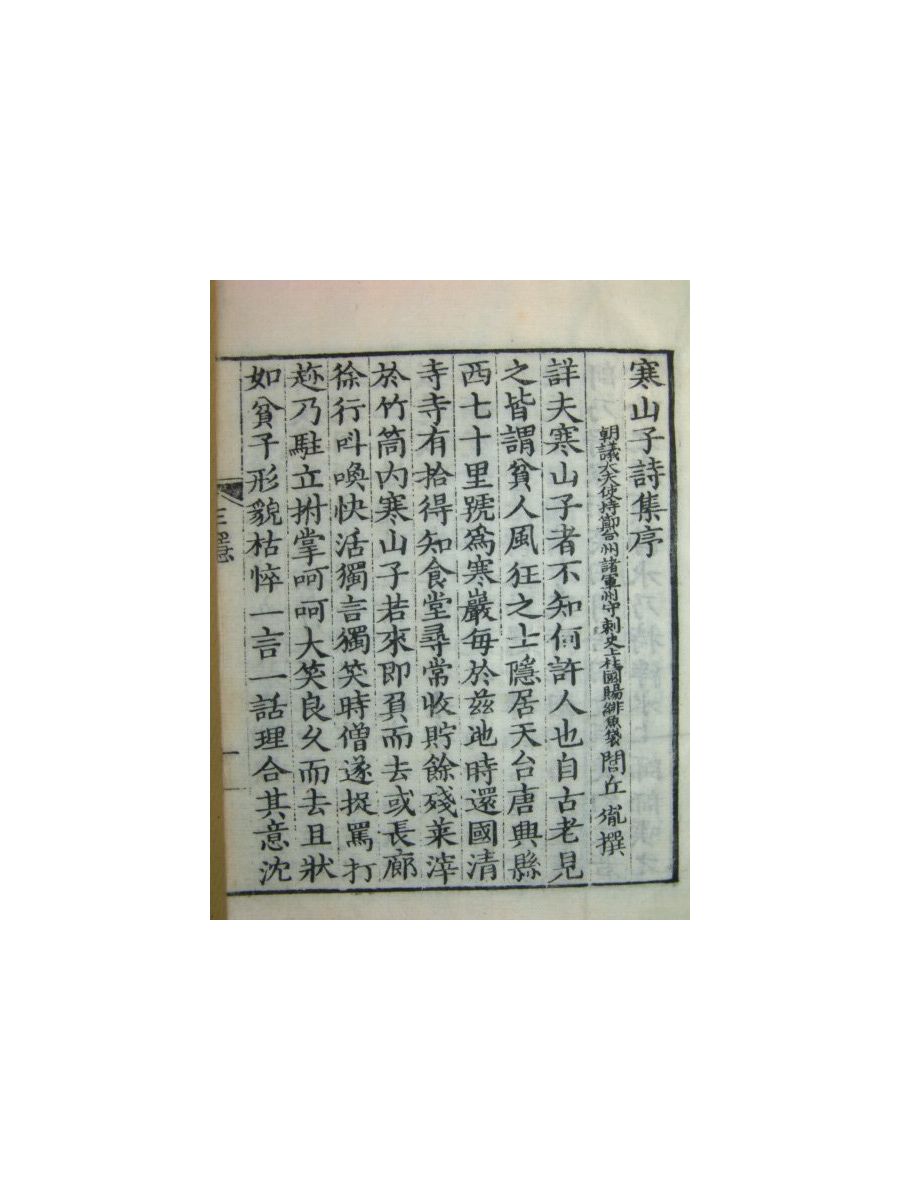 寒山子詩集序
朝議大夫使持節台州諸軍州守刺史上柱國賜緋魚袋閭丘胤撰
詳夫寒山子者不知何許人也自古老見
之皆謂貧人風狂之士隱居天台唐興縣
西七十里號爲寒巖每於茲地時還國清
寺寺有拾得知食堂尋常收貯餘殘菜滓
於竹筒內寒山子若來即負而去或長廊
徐行叫喚快活獨言獨笑時僧遂捉罵打
趂乃駐立拊掌呵呵大笑良久而去且狀
如貧子形貌枯悴一言一話理合其意沈
三隱